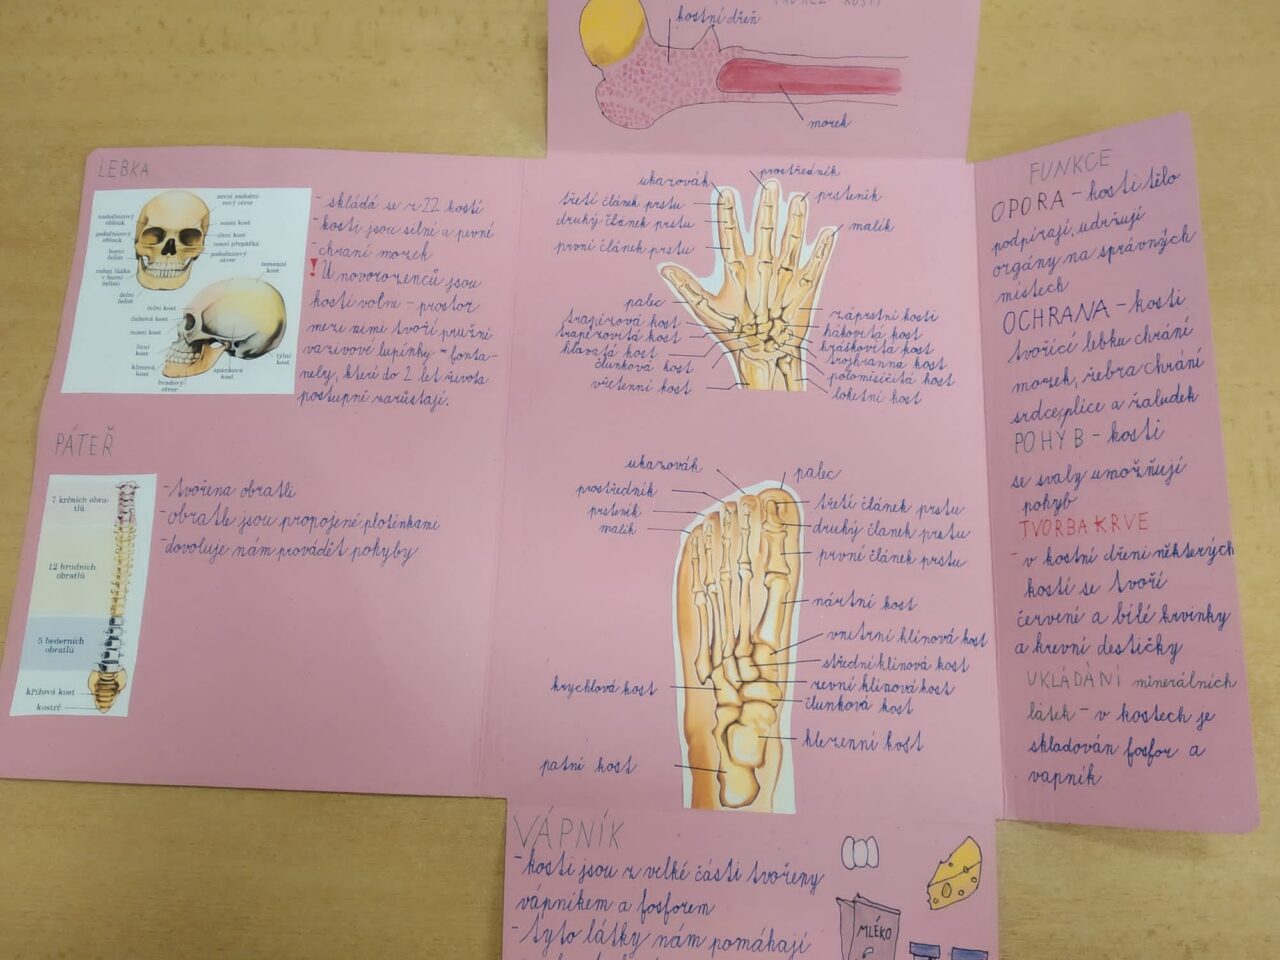 PRŮŘEZ KOSTÍ
kostní dřeň
morek
LEBKA
nadočnicový oblouk
podočnicový oblouk
horní čelist
zubní lůžka v horní čelisti
dolní čelist
nosní kost
slzní kost
nosní přepážka
podočnicový otvor
temenní kost
čelní kost
čichová kost
nosní kost
lícní kost
klínová kost
bradový otvor
spánková kost
týlní kost
- skládá se z 22 kostí
- kosti jsou silné a pevné
- chrání morek
! U novorozenců jsou
kosti volné - prostor
mezi nimi tvoří pružné
vazivové lupínky = fonta-
nely, které do 2 let života
postupně zarůstají.
PÁTEŘ
7 krčních obra-
tlů
12 hrudních
obratlů
5 bederních
obratlů
křížová kost
kostrč
- tvořena obratli
- obratle jsou propojené ploténkami
- dovoluje nám provádět pohyby
ukazovák
prostředník
prsteník
malík
třetí článek prstu
druhý článek prstu
první článek prstu
palec
trapézová kost
trapézovitá kost
hlavatá kost
člunková kost
vřetenní kost
záprstní kosti
hákovitá kost
hráškovitá kost
trojhranná kost
poloměsíčitá kost
loketní kost
ukazovák
prostředník
prsteník
malík
palec
třetí článek prstu
druhý članek prstu
první článek prstu
nártní kost
vnitřní klínová kost
střední klínová kost
zevní klínová kost
člunková kost
krychlová kost
hlezenní kost
patní kost
FUNKCE
OPORA - kosti tělo
podpírají, udržují
orgány na správných
místech
OCHRANA - kosti
tvořící lebku chrání
morek, žebra chrání
srdce, plíce a žaludek
POHYB - kosti
se svaly umožňují
pohyb
TVORBA KRVE
- v kostní dřeni některých
kostí se tvoří
červené a bílé krvinky
a krevní destičky
UKLÁDÁNÍ minerálních
látek - v kostech je
skladován fosfor a
vápník
VÁPNÍK
- kosti jsou z velké části tvořeny
vápníkem a fosforem
- tyto látky nám pomáhají
MLÉKO